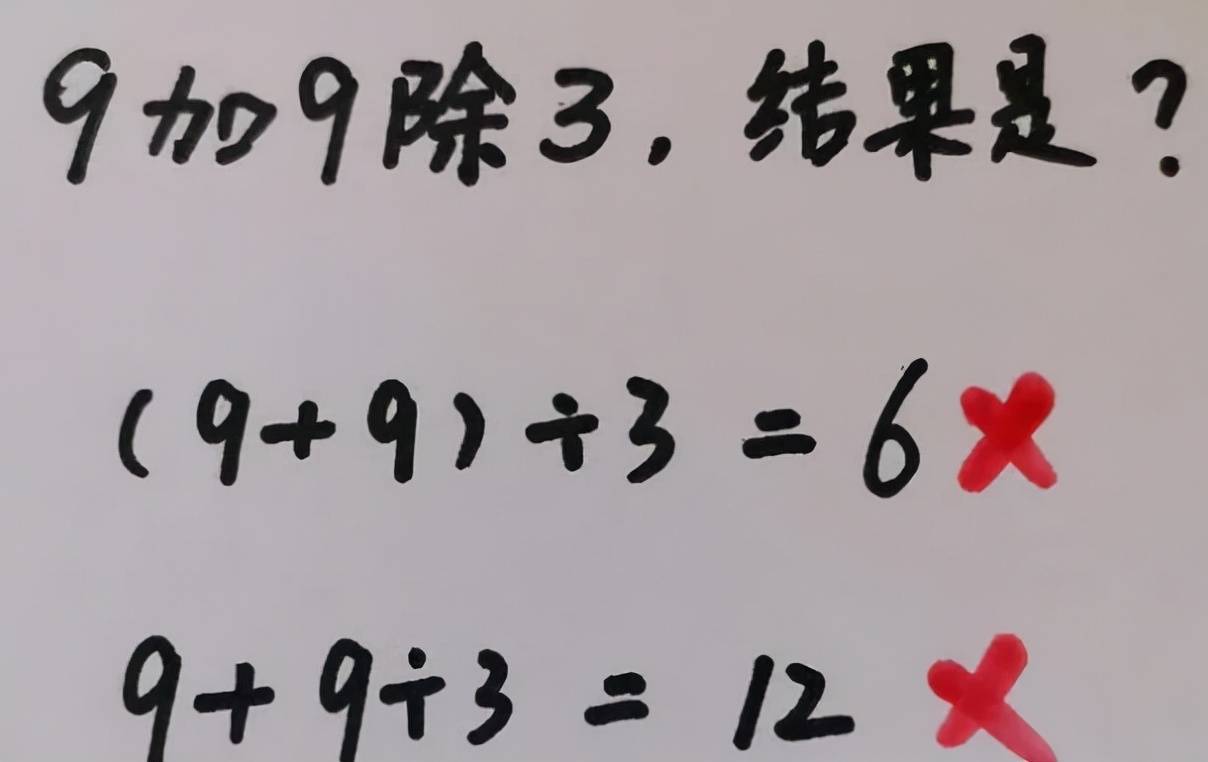 9加9除3,结果是?
(9+9)÷3=6
9+9÷3=12